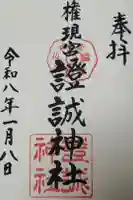 奉拝
権現宮證誠神社
令和八年一月八日
證誠神社